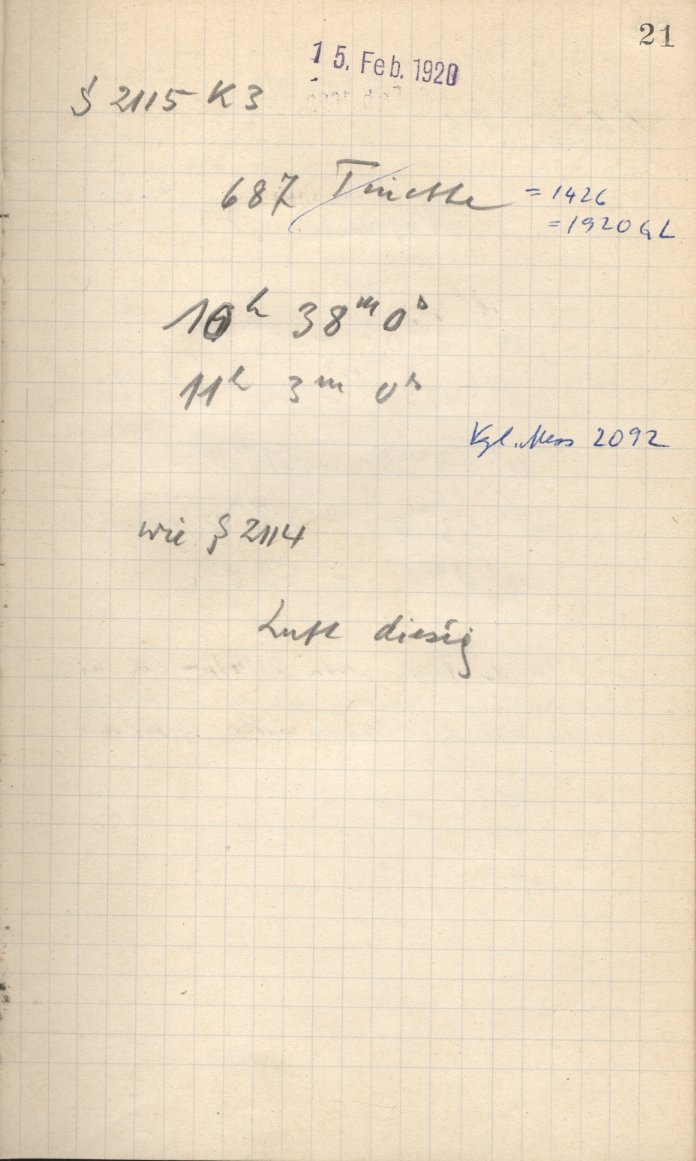 21
15. Feb. 1920
§ 2115 K3
687 Tinette = 1426
= 1920 GL
10h 38m 0s
11h 3m 0s
Kgl. 2092
wie § 2114
Luft diesig